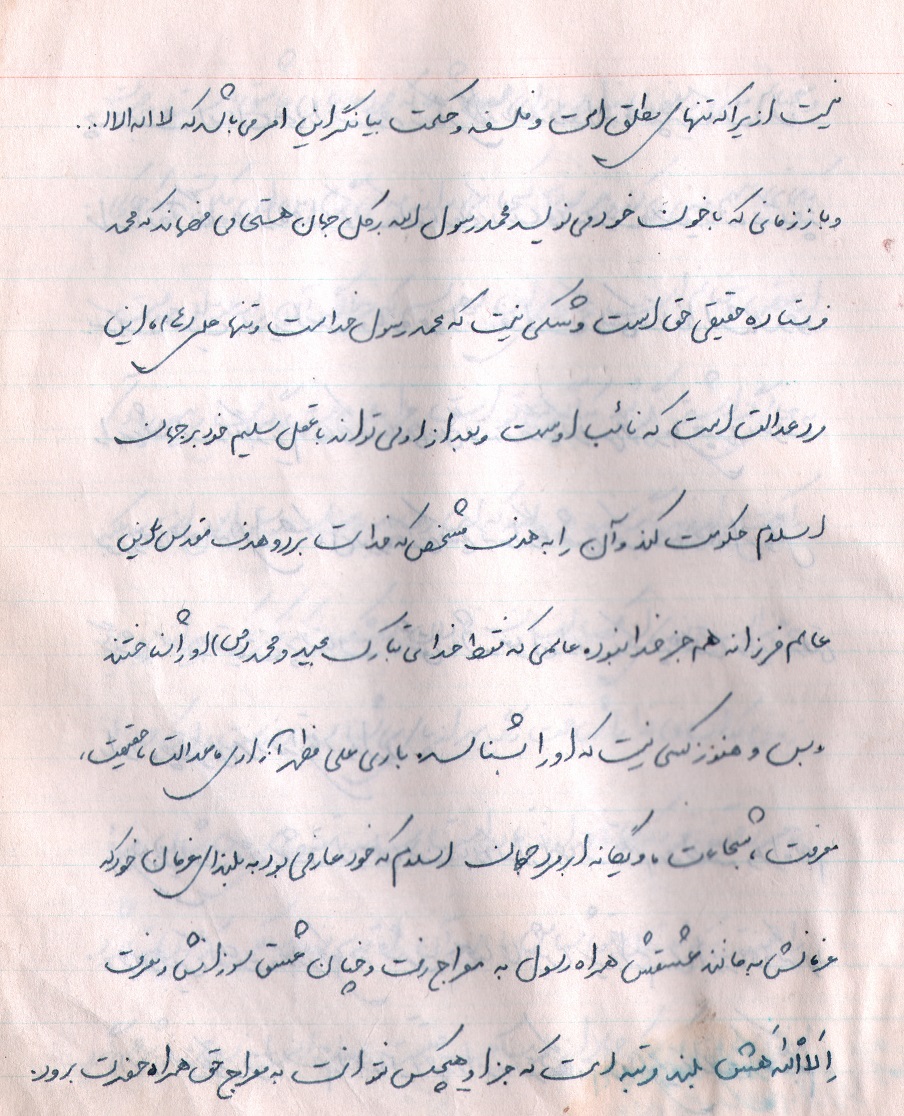 نیست از یرا که تنهای مطلق است و فلسفه و حکمت بیانگر این امر می باشد که لا اله الا ا...
و باز زمانی که با خون خود می نویسد محمد رسول الله بر کل جهان هستی می فهماند که محمد
فرستاده حقیقی حق است و شکی نیست که محمد رسول خداست و تنها علی (ع)، این
مرد عدالت است که نائب اوست و بعد از او می تواند با عقل سلیم خود بر جهان
اسلام حکومت کند و آن را به هدف مشخص که خداست برد و هدف مقدس این
عالم فرزانه هم جز خدا نبوده عالمی که فقط خدای تبارک مجید و محمد (ص) او را شناختند
و بس و هنوز کسی نیست که او را بشناسد. باری علی مظهر آزادی، عدالت، حقیقت،
معرفت، شجاعت، و یگانه ابرمرد جهان اسلام که خود عارفی بود به بلندای عرفان خود که
عرفانش به مانند عشقش همراه رسول به معراج رفت و چنان عشق سوزانش و معرفت
الا اللهش بلند مرتبه است که جز او هیچکس نتوانست به معراج حق همراه حضرت برود.